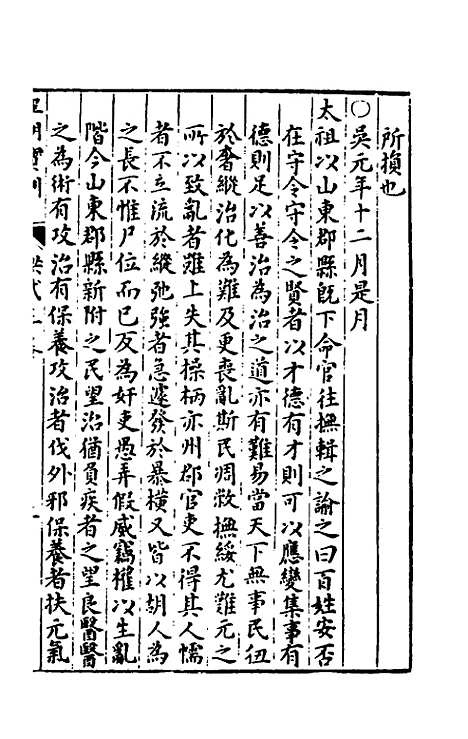 所損也
○吳元年十二月是月
太祖以山東郡縣既下命官往撫輯之諭之曰百姓安否
在守令守令之賢者以才德有才則可以應變集事有
德則足以善治為治之道亦有難易當天下無事民狃
於奢縱治化為難及更喪亂斯民凋敝撫綏尤難元之
所以致亂者雖上失其操柄亦州郡官吏不得其人懦
者不立流於縱弛強者急遽發於暴橫又皆以胡人為
之長不惟尸位而已反為奸吏愚弄假威竊權以生亂
階今山東郡縣新附之民望治猶負疾者之望良醫醫
之為術有攻治有保養攻治者伐外邪保養者扶元氣